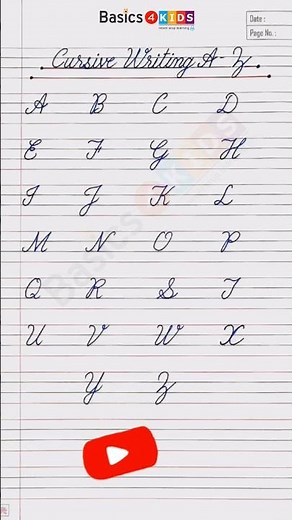 Basics 4 KIDS
Date :
Page No. :
Cursive Writing A-Z
A B C D
E F G H
I J K L
M N O P
Q R S T
U V W X
Y Z
Basics 4 KIDS